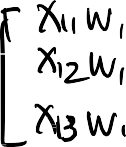 X₁₁ W₁
X₁₂ W₁
X₁₃ W₁